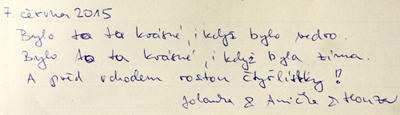 7. června 2015
Bylo to tu krásné, i když bylo vedro.
Bylo to tu krásné, i když byla zima.
A před vchodem rostou čtyřlístky!
Jolanka & Anička & Honza